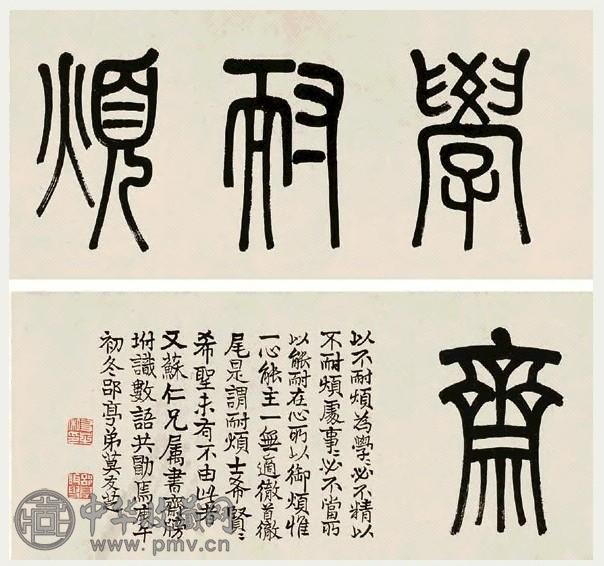 學耐煩
齋
以不耐煩為學〻必不精以
不耐煩處事〻必不當所
以能耐在心所以御煩惟
一心能主一無適徹首徹
尾是謂耐煩士希賢〻
希聖未有不由此者
又蘇仁兄属書齋牓
坿識數語共勖焉庚午
初冬郘亭弟莫友芝
中华收藏网
www.pmv.cn